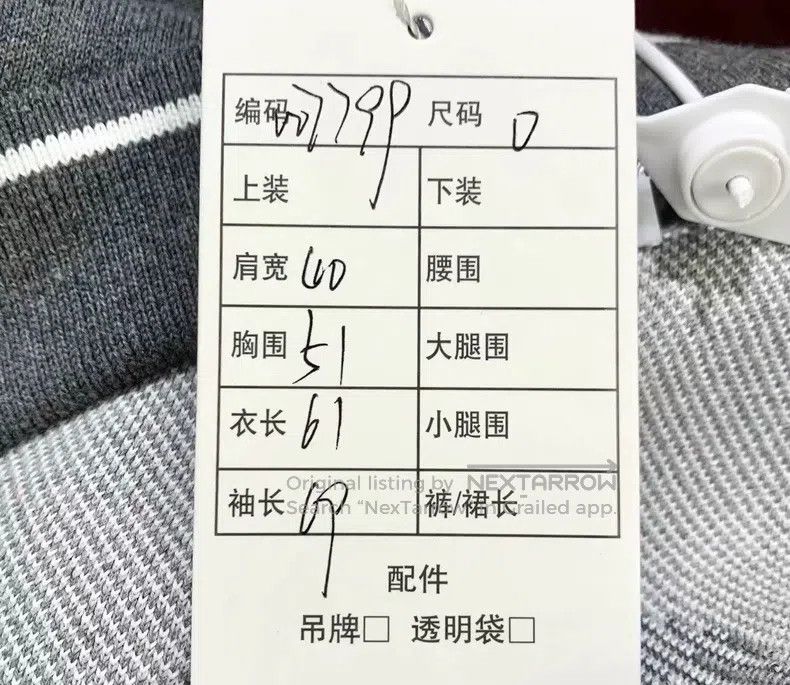 编码 007799 尺码 0
上装 下装
肩宽 40 腰围
胸围 51 大腿围
衣长 61 小腿围
Original listing by NEXTARROW
袖长 裤/裙长
Search "NexTarrow" in Grailed app.
配件
吊牌□ 透明袋□